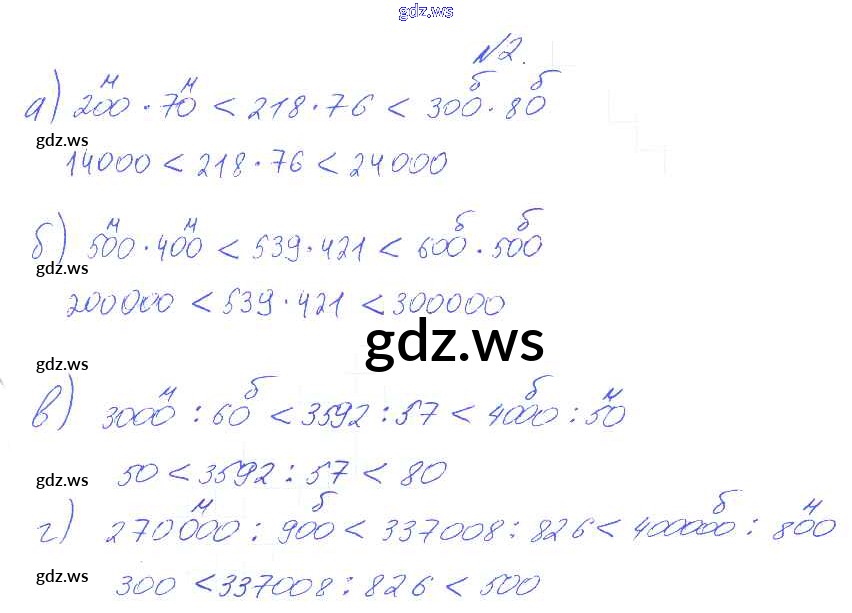 gdz.ws
№2.
м м б б
а) 200 · 70 < 218 · 76 < 300 · 80
gdz.ws
14000 < 218 · 76 < 24000
м м б б
б) 500 · 400 < 539 · 421 < 600 · 500
gdz.ws
200000 < 539 · 421 < 300000
gdz.ws
gdz.ws
м б б м
в) 3000 : 60 < 3592 : 57 < 4000 : 50
gdz.ws
50 < 3592 : 57 < 80
м б б м
г) 270000 : 900 < 337008 : 826 < 400000 : 800
gdz.ws
300 < 337008 : 826 < 500